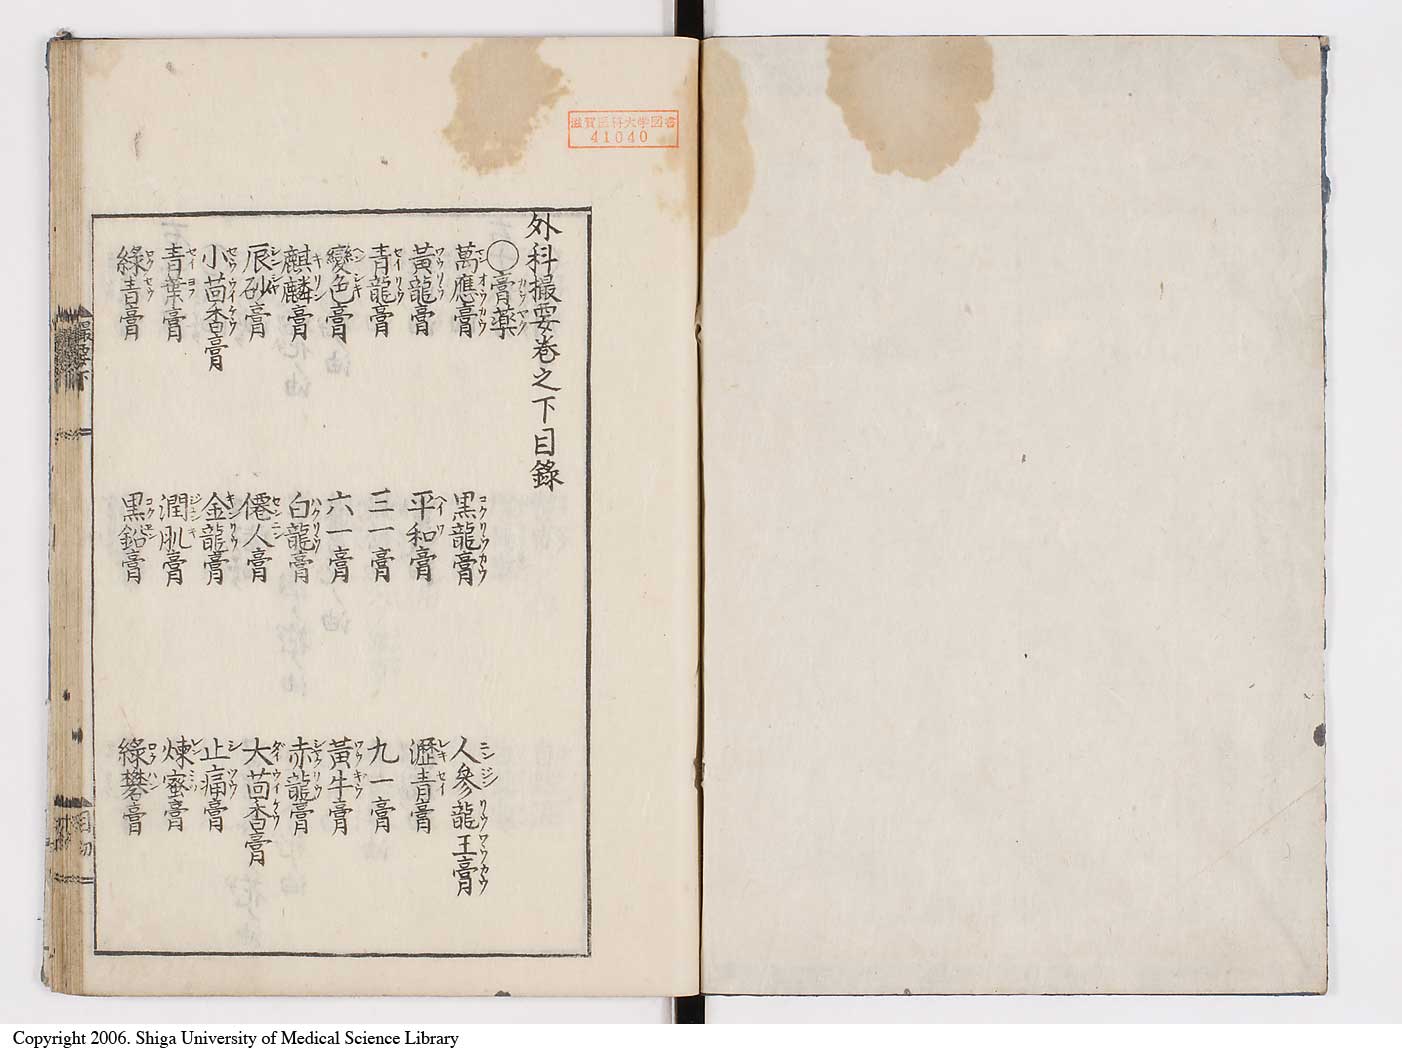 滋賀医科大学図書
41040
外科撮要巻之下目錄
◯膏藥
萬應膏 黒龍膏 人參龍王膏
黃龍膏 平和膏 瀝青膏
青龍膏 三一膏 九一膏
變色膏 六一膏 黃牛膏
麒麟膏 白龍膏 赤龍膏
辰砂膏 僊人膏 大茴香膏
小茴香膏 金龍膏 止痛膏
青葉膏 潤肌膏 煉蜜膏
綠青膏 黒鉛膏 綠礬膏
撮要下
目初
Copyright 2006. Shiga University of Medical Science Library